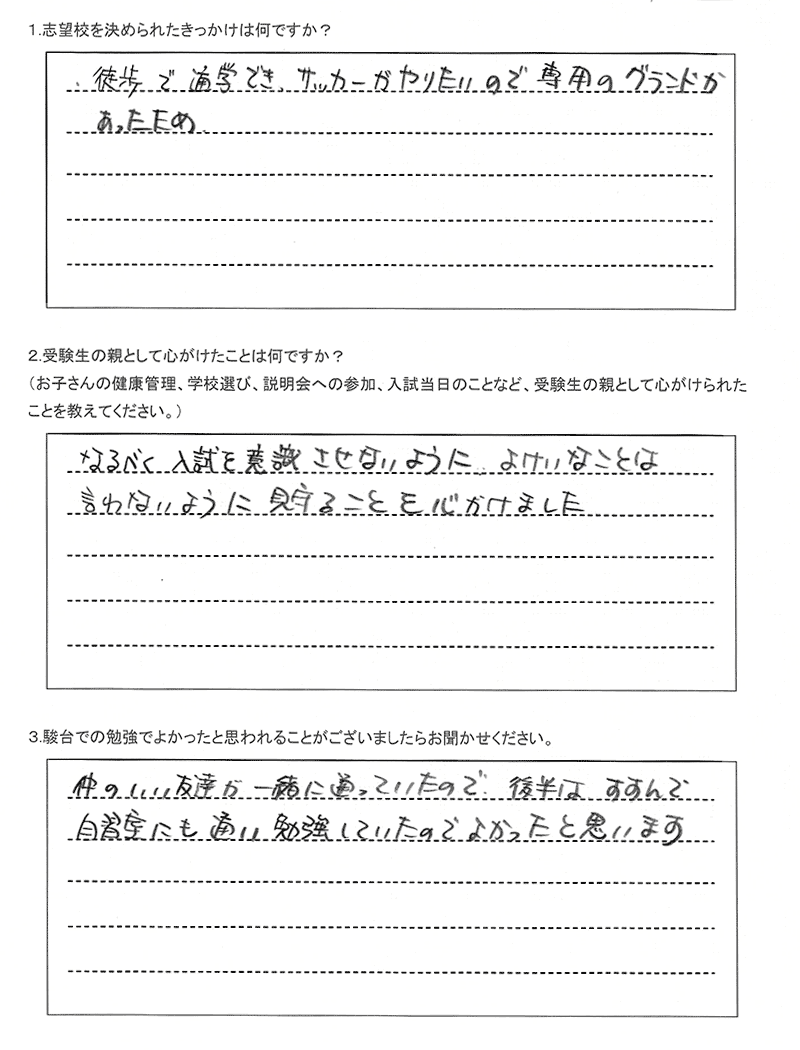 1.志望校を決められたきっかけは何ですか？
徒歩で通学でき、サッカーがやりたいので専用のグランドが
あったため
2.受験生の親として心がけたことは何ですか？
（お子さんの健康管理、学校選び、説明会への参加、入試当日のことなど、受験生の親として心がけられた
ことを教えてください。）
なるべく入試を意識させないように、よけいなことは
言わないように見守ることを心がけました
3.駿台での勉強でよかったと思われることがございましたらお聞かせください。
仲のいい友達が一緒に通っていたので、後半はすすんで
自習室にも通い勉強していたのでよかったと思います